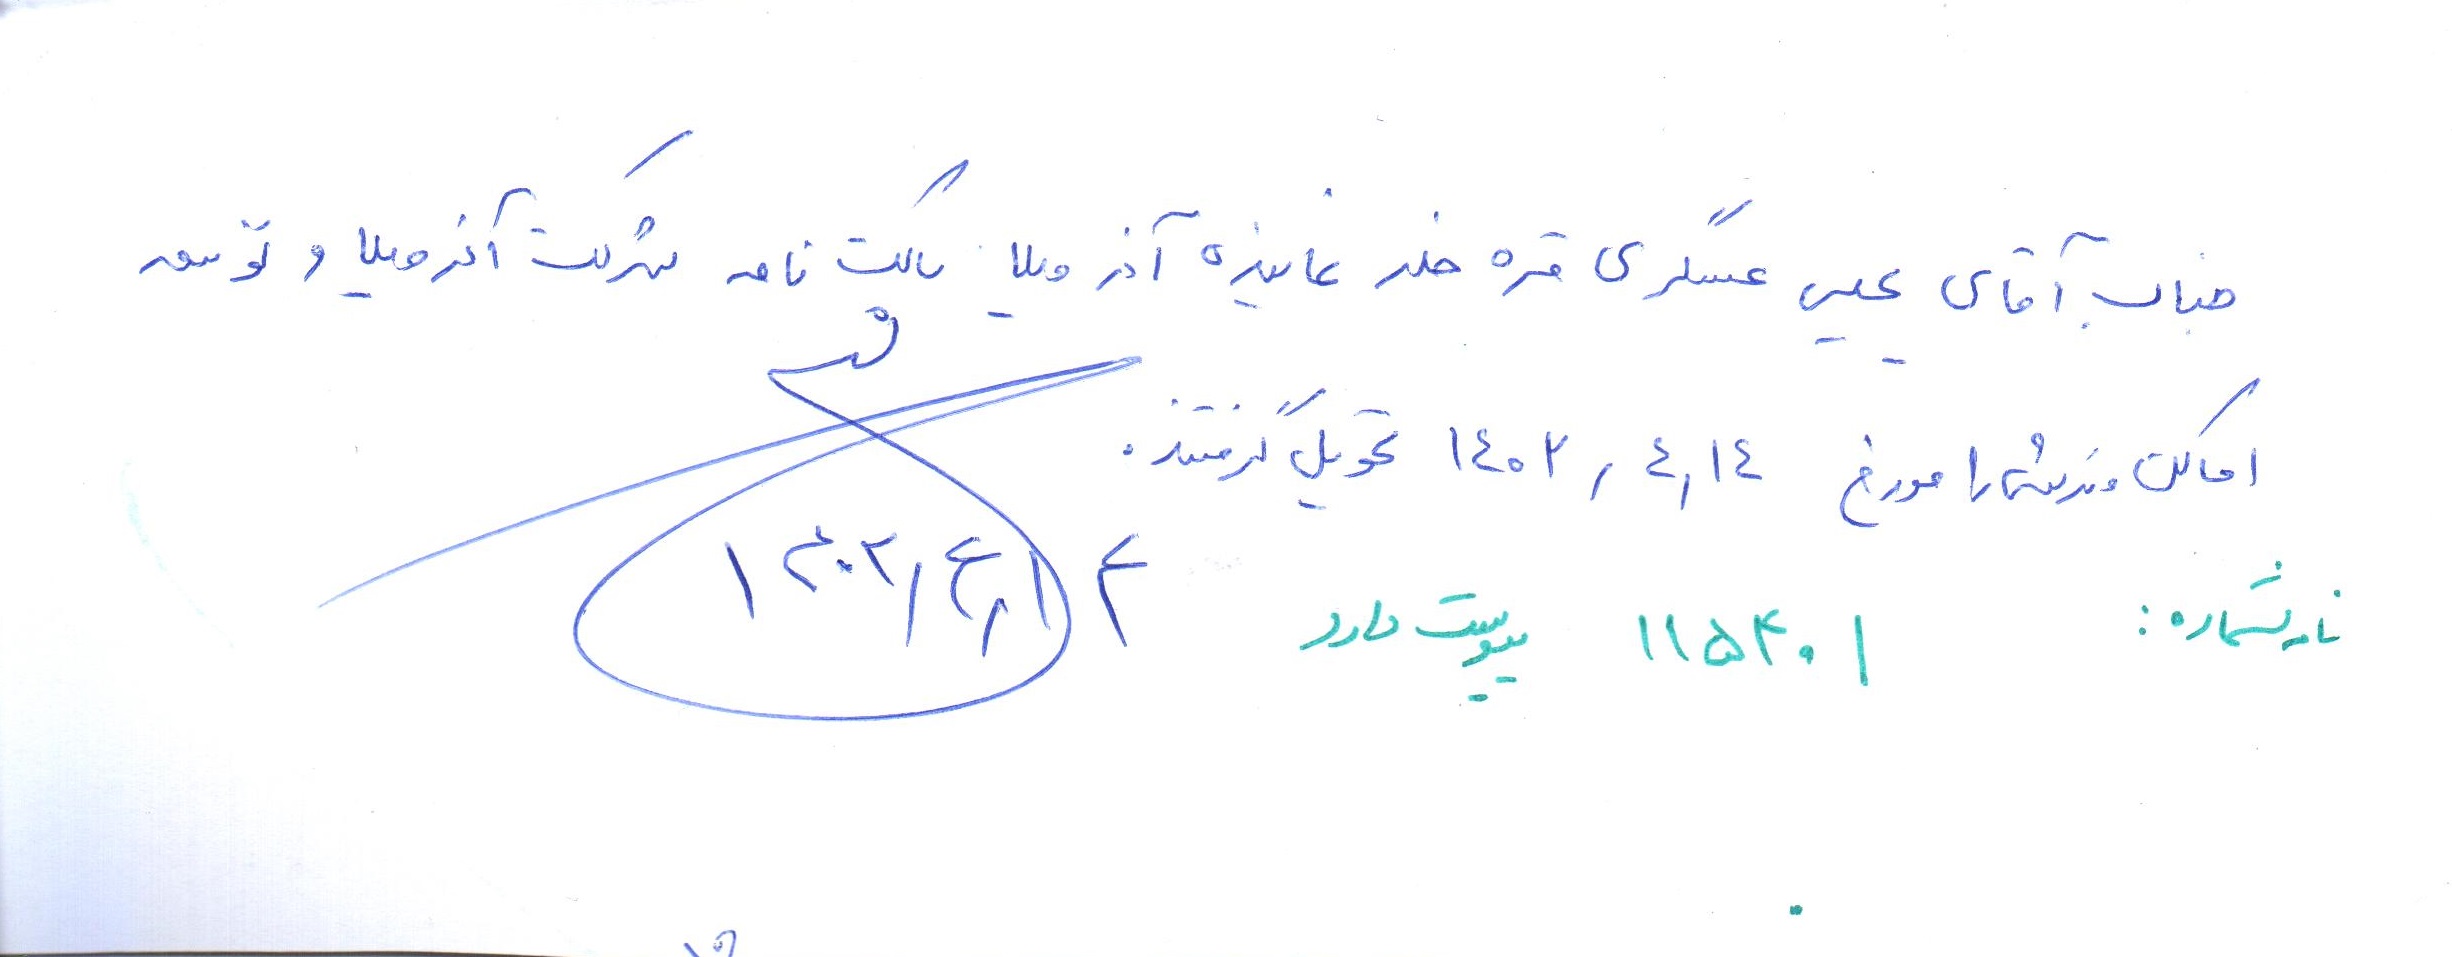 جناب آقای یحیی عسگری قره خلد نماینده آذر ویلا پاکت نامه شرکت آذر ویلا و توسعه
اماکن ورزشی را مورخ ۱٤۰۲٫٤٫۱٤ تحویل گرفتند.
۱۴۰۲٫۴٫۱۴
نامه شماره: ۱۱۵۴۰۱ پیوست دارد